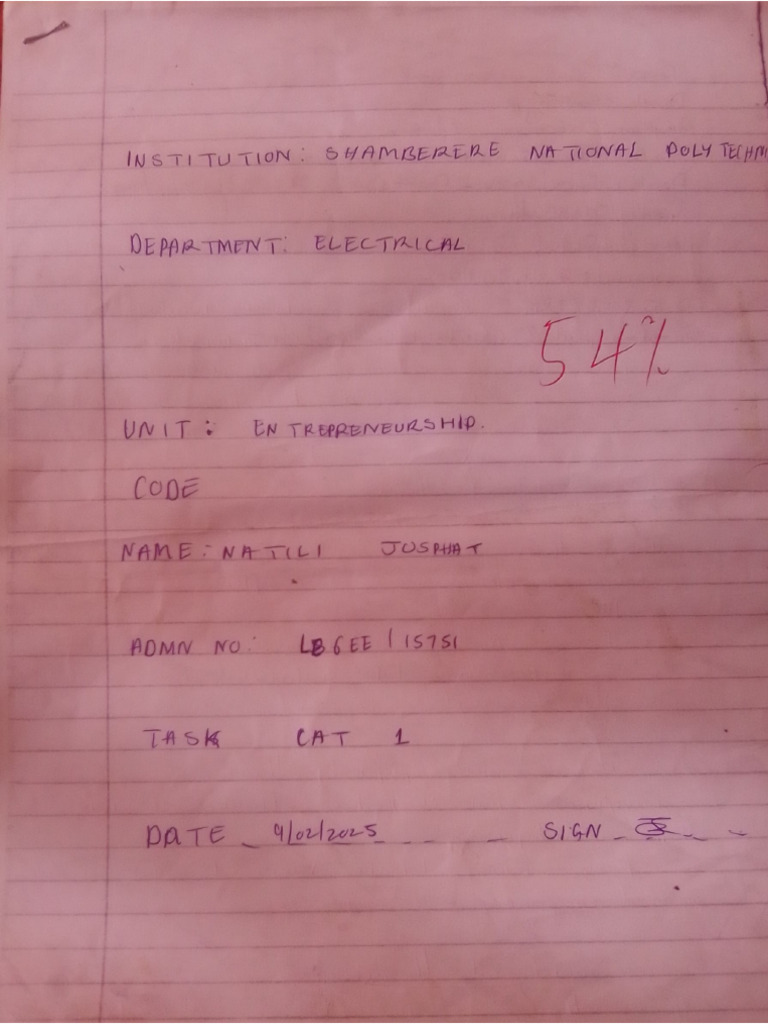 INSTITUTION: SHAMBERERE NATIONAL POLYTECHNI
DEPARTMENT: ELECTRICAL
54%
UNIT: ENTREPRENEURSHIP.
CODE
NAME: NATILI JOSPHAT
ADMN NO: LB6EE/15751
TASK CAT 1
DATE 9/02/2025 SIGN